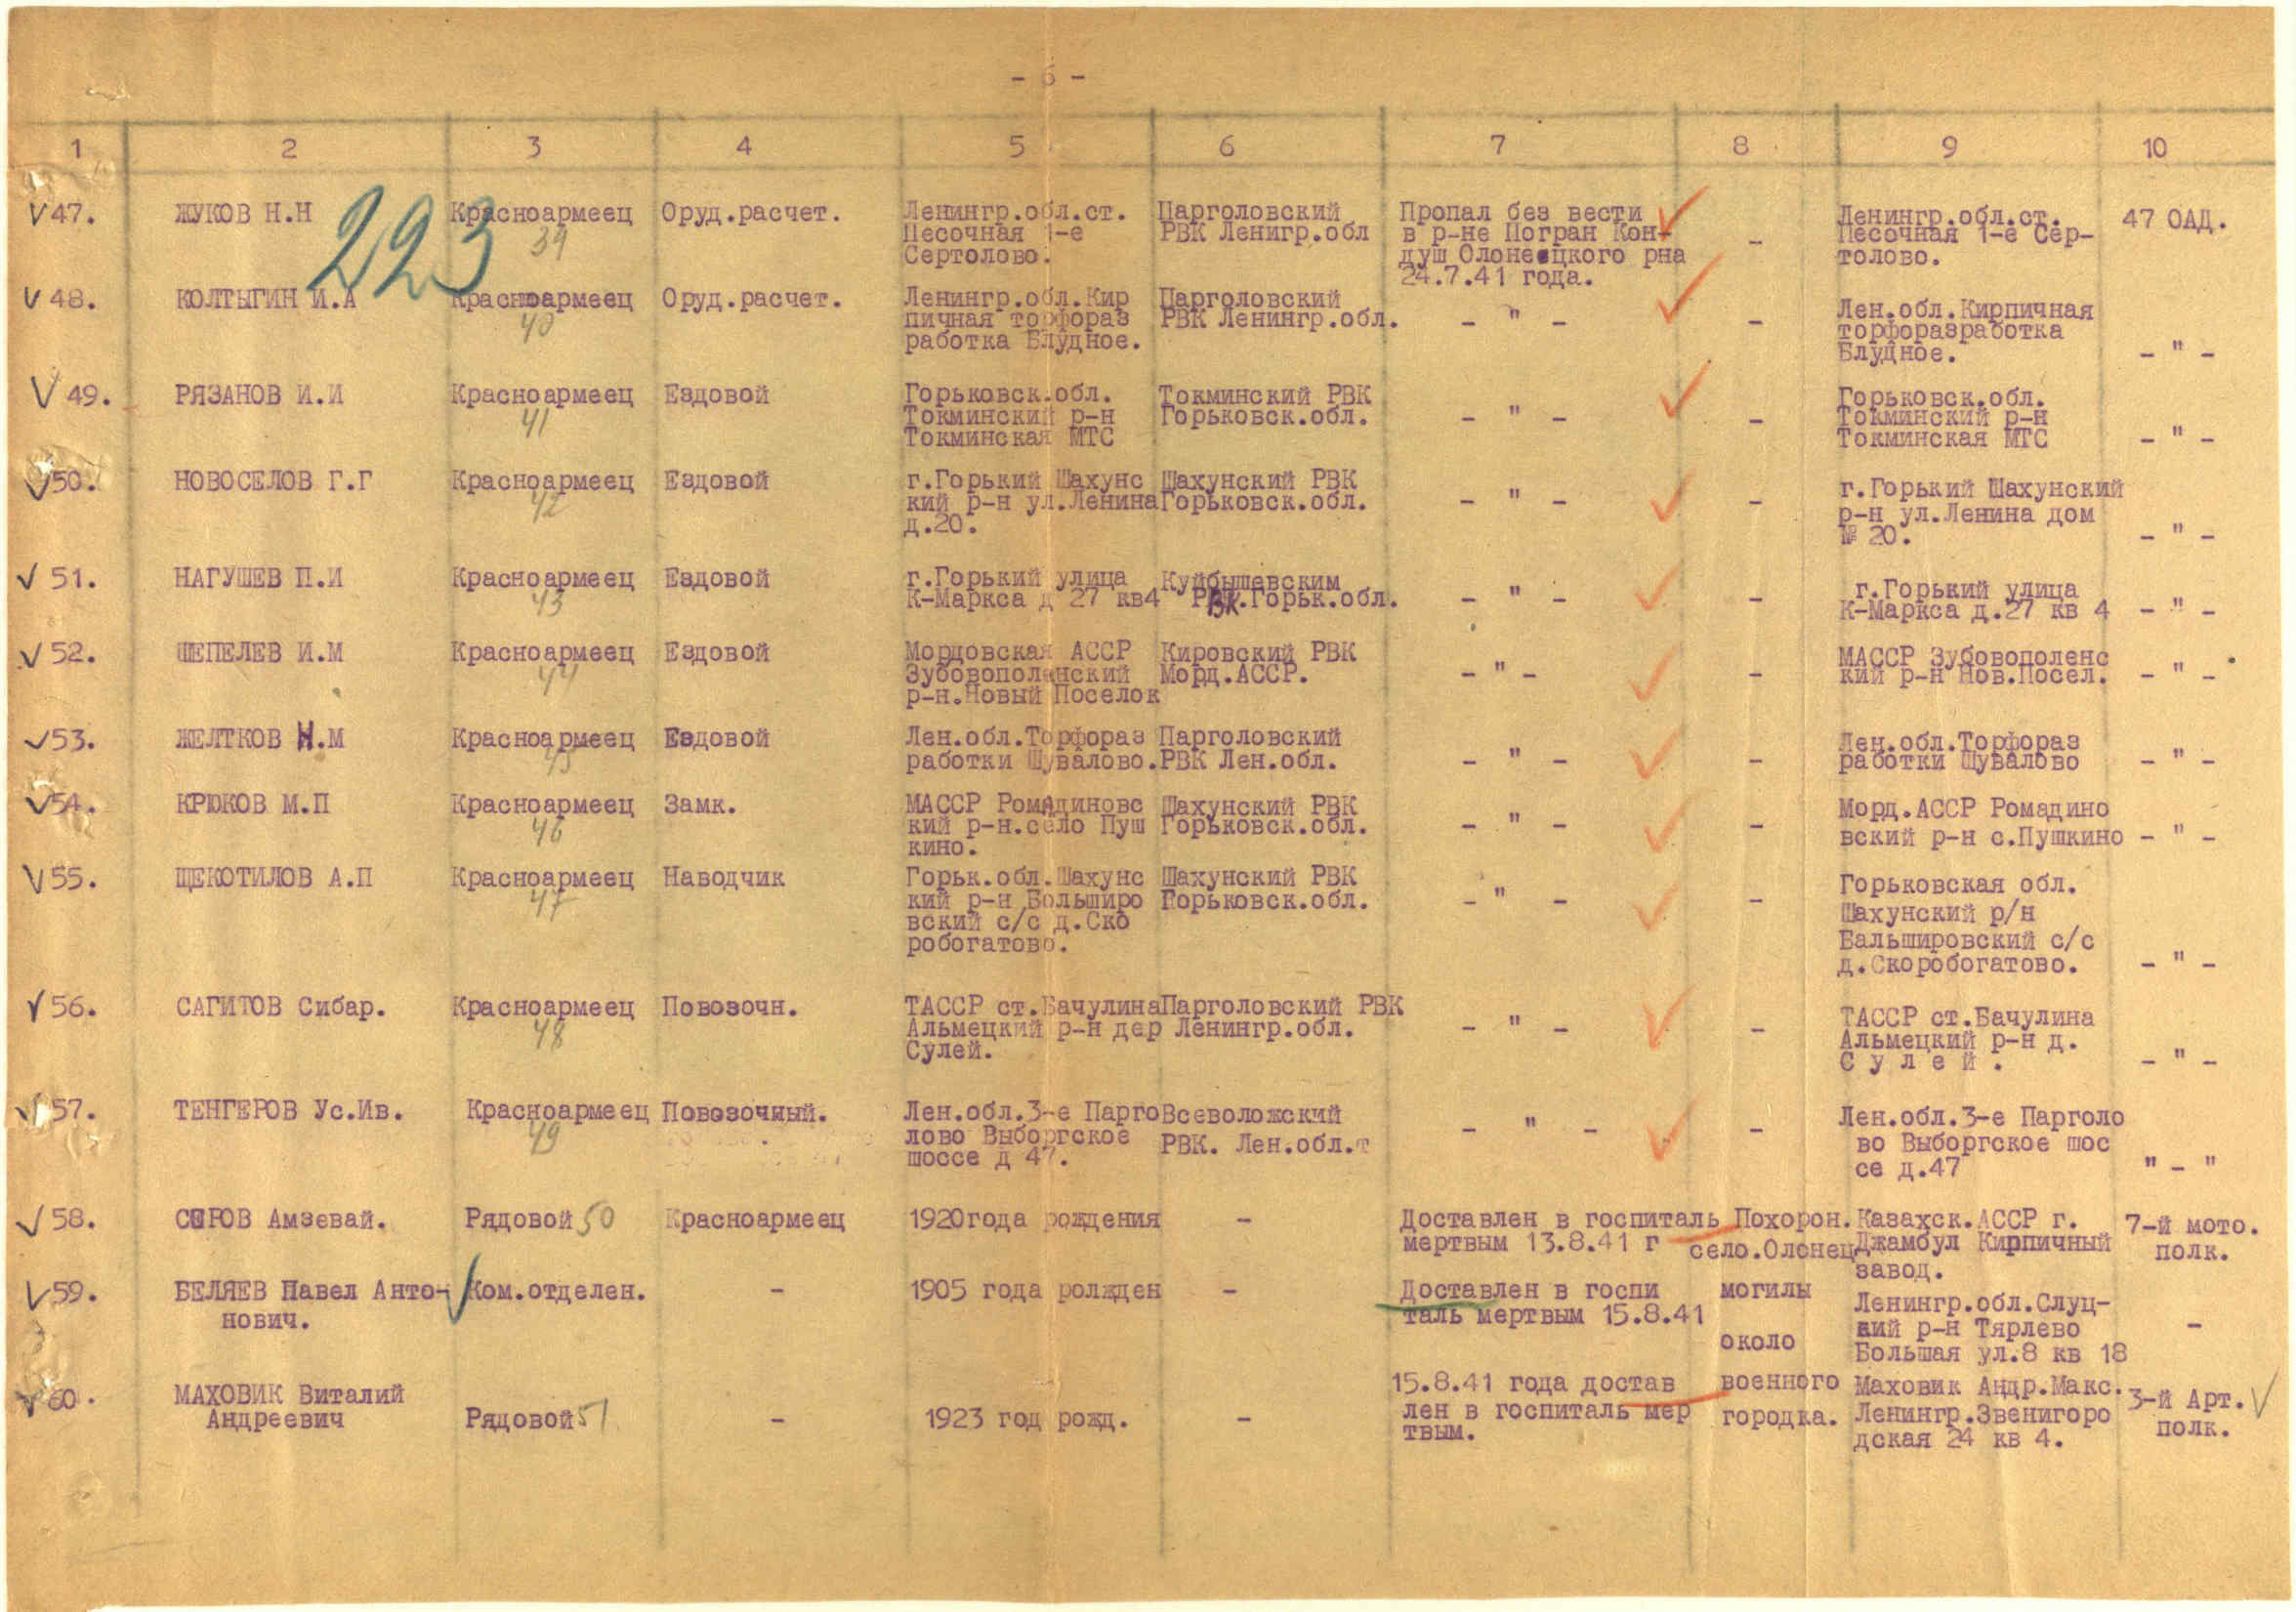 - 6 -
1 2 3 4 5 6 7 8 9 10
223
47. ЖУКОВ Н.Н Красноармеец Оруд.расчет. Ленингр.обл.ст. Парголовский Пропал без вести Ленингр.обл.ст. 47 ОАД.
39 Песочная 1-е РВК Лениgr.обл в р-не Погран Кон- - Песочная 1-е Сер-
Сертолово. душ Олонецкого рна толово.
24.7.41 года.
48. КОЛТЫГИН И.А Красноармеец Оруд.расчет. Ленингр.обл.Кир Парголовский Лен.обл.Кирпичная
40 пичная торфораз РВК Ленингр.обл. - " - - торфоразработка
работка Блудное. Блудное. - " -
49. РЯЗАНОВ И.И Красноармеец Ездовой Горьковск.обл. Токминский РВК Горьковск.обл.
41 Токминский р-н Горьковск.обл. - " - - Токминский р-н
Токминская МТС Токминская МТС - " -
50. НОВОСЕЛОВ Г.Г Красноармеец Ездовой г.Горький Шахунс Шахунский РВК г.Горький Шахунский
42 кий р-н ул.Ленина Горьковск.обл. - " - - р-н ул.Ленина дом
д.20. № 20. - " -
51. НАГУШЕВ П.И Красноармеец Ездовой г.Горький улица Куйбышевским г.Горький улица
43 К-Маркса д 27 кв4 РВК.Горьк.обл. - " - - К-Маркса д.27 кв 4 - " -
52. ШЕПЕЛЕВ И.М Красноармеец Ездовой Мордовская АССР Кировский РВК МАССР Зубовополенс
44 Зубовополянский Морд.АССР. - " - - кий р-н Нов.Посел. - " -
р-н.Новый Поселок
53. ЖЕЛТКОВ Н.М Красноармеец Ездовой Лен.обл.Торфораз Парголовский Лен.обл.Торфораз
45 работки Шувалово. РВК Лен.обл. - " - - работки Шувалово - " -
54. КРЮКОВ М.П Красноармеец Замк. МАССР Ромадиновс Шахунский РВК Морд.АССР Ромадино
46 кий р-н.село Пуш Горьковск.обл. - " - - вский р-н с.Пушкино - " -
кино.
55. ЩЕКОТИЛОВ А.П Красноармеец Наводчик Горьк.обл.Шахунс Шахунский РВК Горьковская обл.
47 кий р-н Больширо Горьковск.обл. - " - - Шахунский р/н
вский с/с д.Ско Бальшировский с/с
робогатово. д.Скоробогатово. - " -
56. САГИТОВ Сибар. Красноармеец Повозочн. ТАССР ст.Бачулина Парголовский РВК ТАССР ст.Бачулина
48 Альмецкий р-н дер Ленингр.обл. - " - - Альмецкий р-н д.
Сулей. С у л е й . - " -
57. ТЕНГЕРОВ Ус.Ив. Красноармеец Повозочный. Лен.обл.3-е Парго Всеволожский Лен.обл.3-е Парголо
49 лово Выборгское РВК. Лен.обл.т - " - - во Выборгское шос
шоссе д 47. се д.47 " - "
58. Амзевай. Рядовой 50 Красноармеец 1920года рождения - Доставлен в госпиталь Похорон. Казахск.АССР г. 7-й мото.
мертвым 13.8.41 г село.Олонец Джамбул Кирпичный полк.
завод.
59. БЕЛЯЕВ Павел Анто- Ком.отделен. - 1905 года ролжден - Доставлен в госпи могилы Ленингр.обл.Слуц-
нович. таль мертвым 15.8.41 около кий р-н Тярлево -
Большая ул.8 кв 18
60. МАХОВИК Виталий 15.8.41 года достав военного Маховик Андр.Макс. 3-й Арт.
Андреевич Рядовой 51 - 1923 год рожд. - лен в госпиталь мер городка. Ленингр.Звенигоро полк.
твым. дская 24 кв 4.